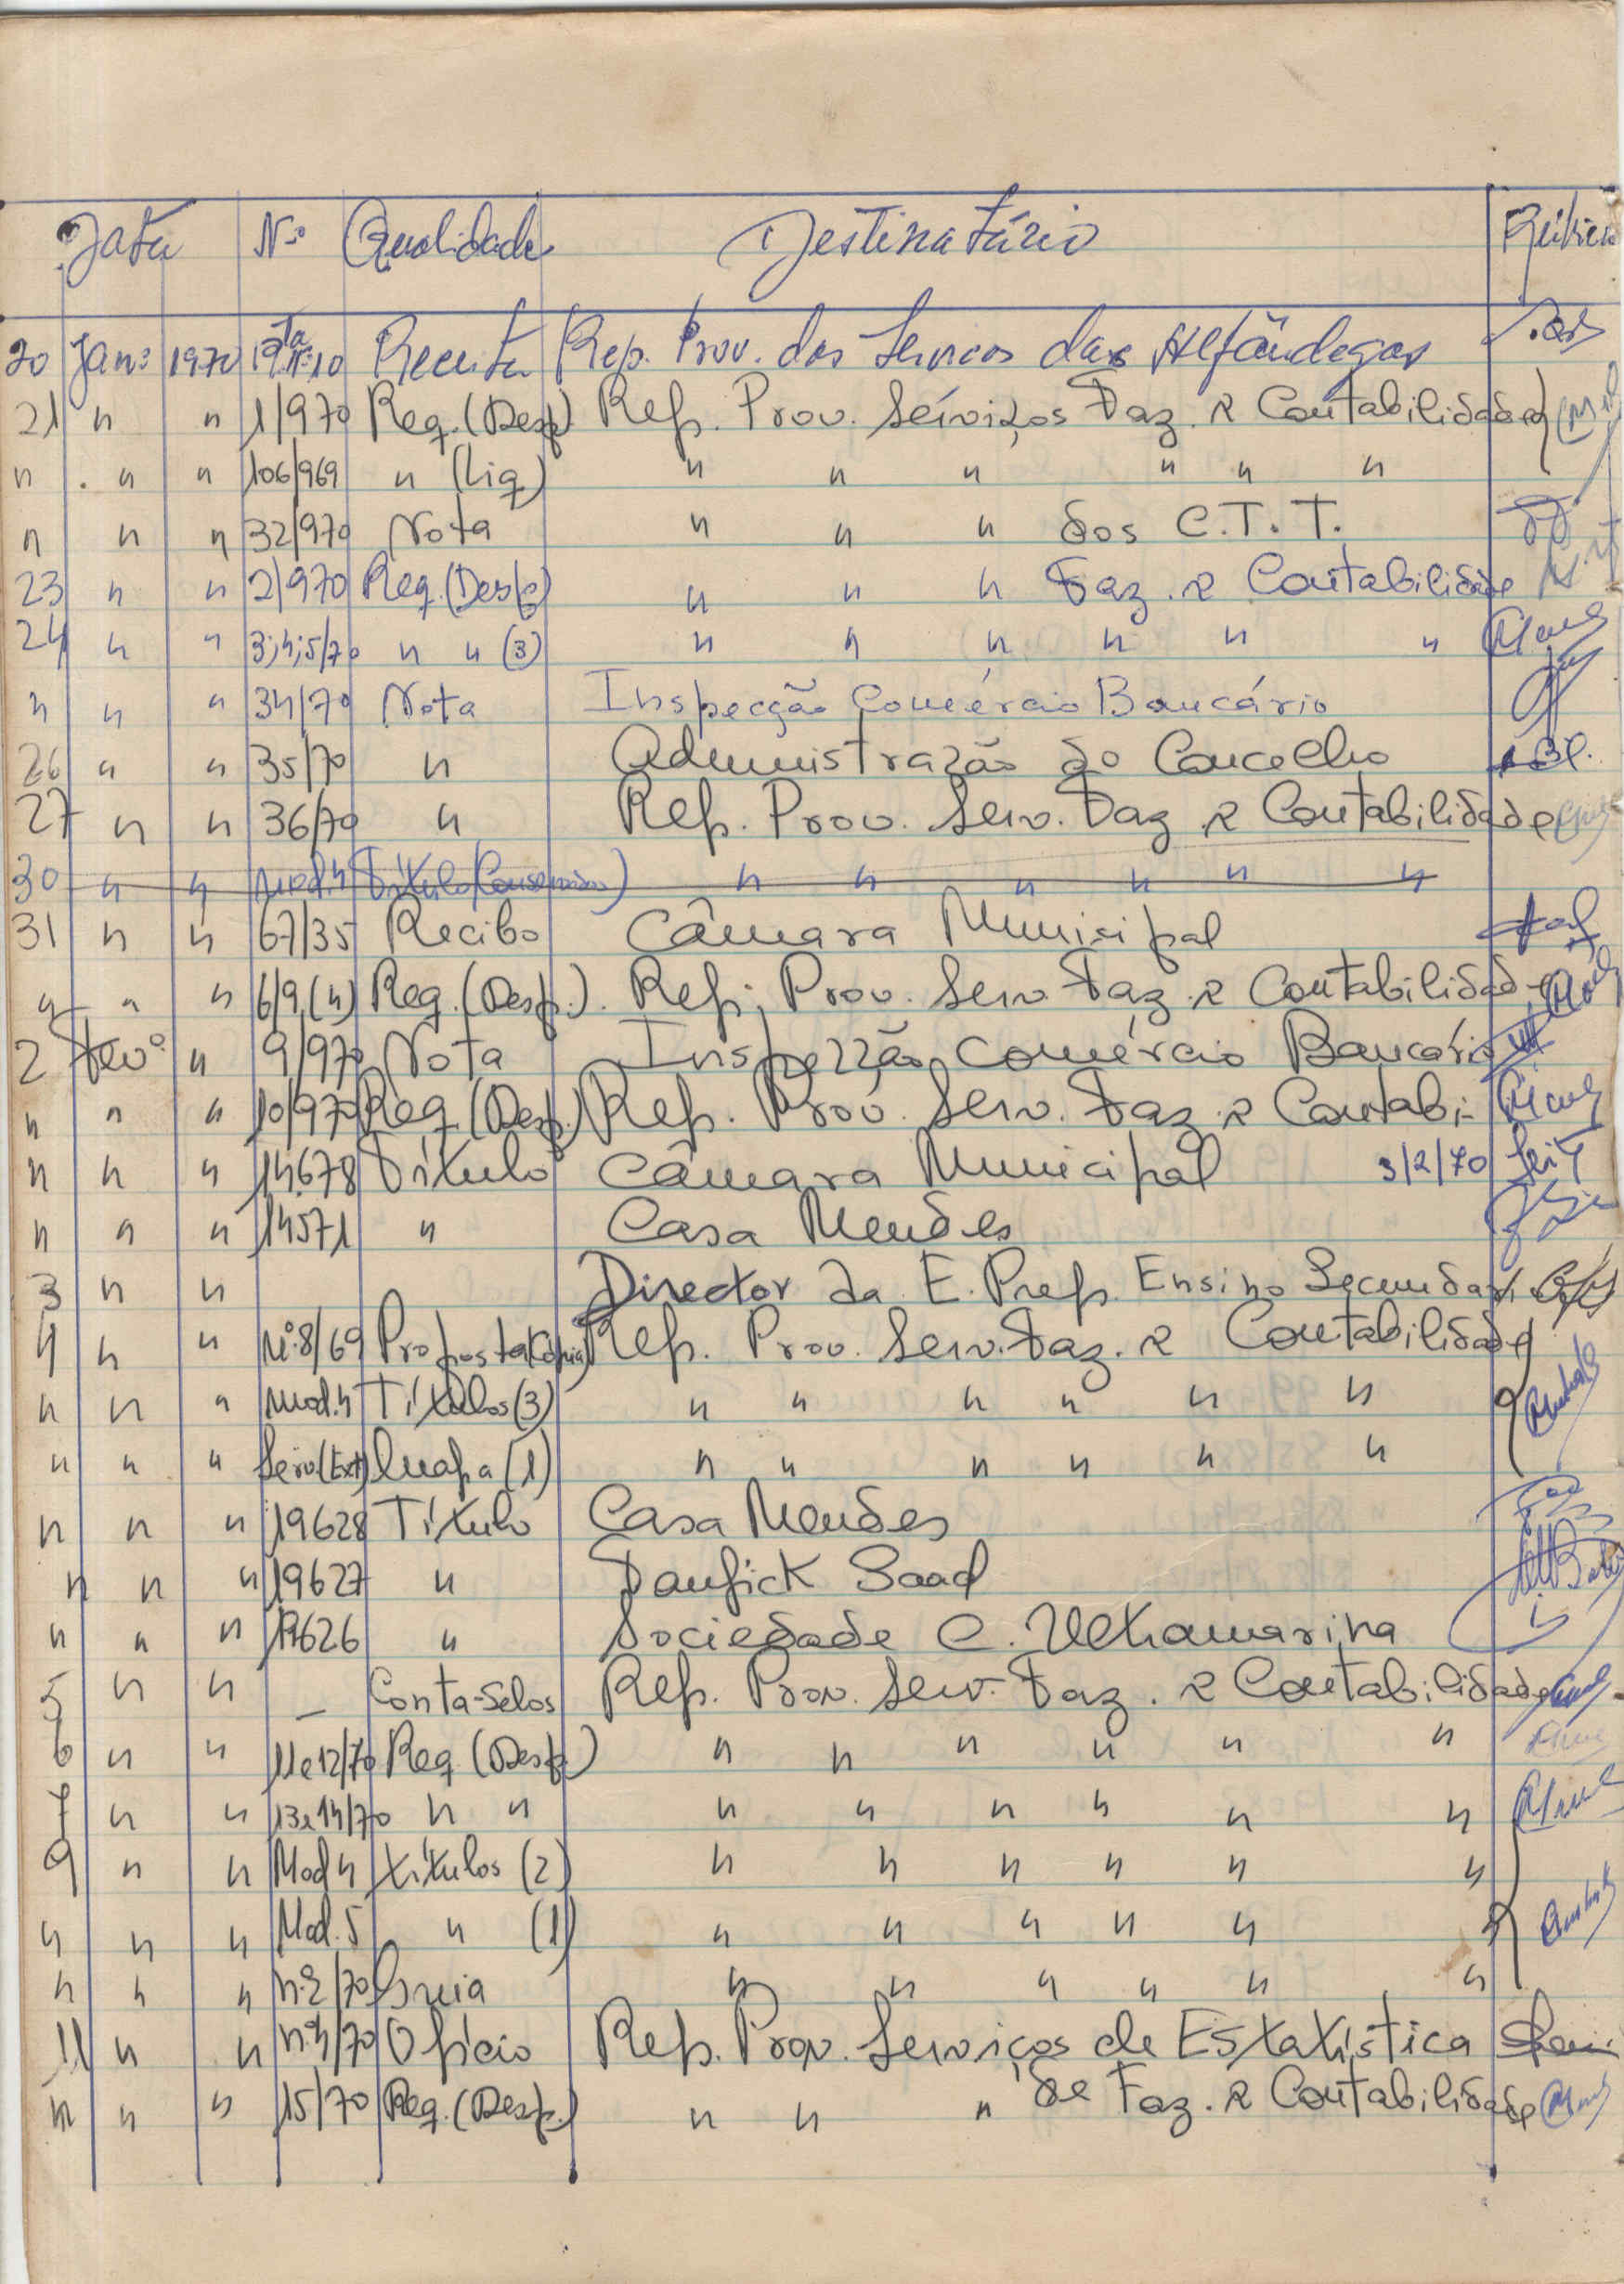 Data Nº Qualidade Destinatário Rúbrica
20 Janº 1970 Receita Rep. Prov. dos Servicos das Alfândegas
21 " " 1/970 Req. (Desp) Rep. Prov. Serviços Faz. e Contabilidade
" " " 106/969 " (Liq) " " " " " "
" " " 32/970 Nota " " " dos C.T.T.
23 " " 2/970 Req. (Desp) " " " Faz. e Contabilidade
24 " " 3;4;5/70 " " (3) " " " " " "
" " " 34/70 Nota Inspecção Comércio Bancário
26 " " 35/70 " Administração do Concelho
27 " " 36/70 " Rep. Prov. Serv. Faz e Contabilidade
30 " " Mod.4 Título " " " " " "
31 " " 67/35 Recibo Câmara Municipal
" " " 6/9 (4) Req. (Desp.) Rep. Prov. Serv. Faz. e Contabilidade
2 Fevº " 9/970 Nota Inspecção Comércio Bancário
" " " 10/970 Req. (Desp.) Rep. Prov. Serv. Faz. e Contabi-
" " " 14678 Título Câmara Municipal 3/2/70
" " " 14571 " Casa Mendes
3 " " Director da E. Prep. Ensino Secundar.
4 " " Nº 8/69 Proposta (Cópia) Rep. Prov. Serv. Faz. e Contabilidade
" " " Mod.4 Títulos (3) " " " " " "
" " " Serv (Ext) Mapa (1) " " " " " "
" " " 19628 Título Casa Mendes
" " " 19627 " Taufick Saad
" " " 19626 " Sociedade C. Ultramarina
5 " " – Conta-Selos Rep. Prov. Serv. Faz. e Contabilidade
6 " " 11 e 12/70 Req. (Desp) " " " " " "
7 " " 13 e 14/70 " " " " " " " "
9 " " Mod 4 títulos (2) " " " " " "
" " " Mod. 5 " (1) " " " " " "
" " " nº 2/70 Guia " " " " " "
11 " " nº 4/70 Ofício Rep. Prov. Serviços de Estatística
" " " 15/70 Req. (Desp.) " " " de Faz. e Contabilidade